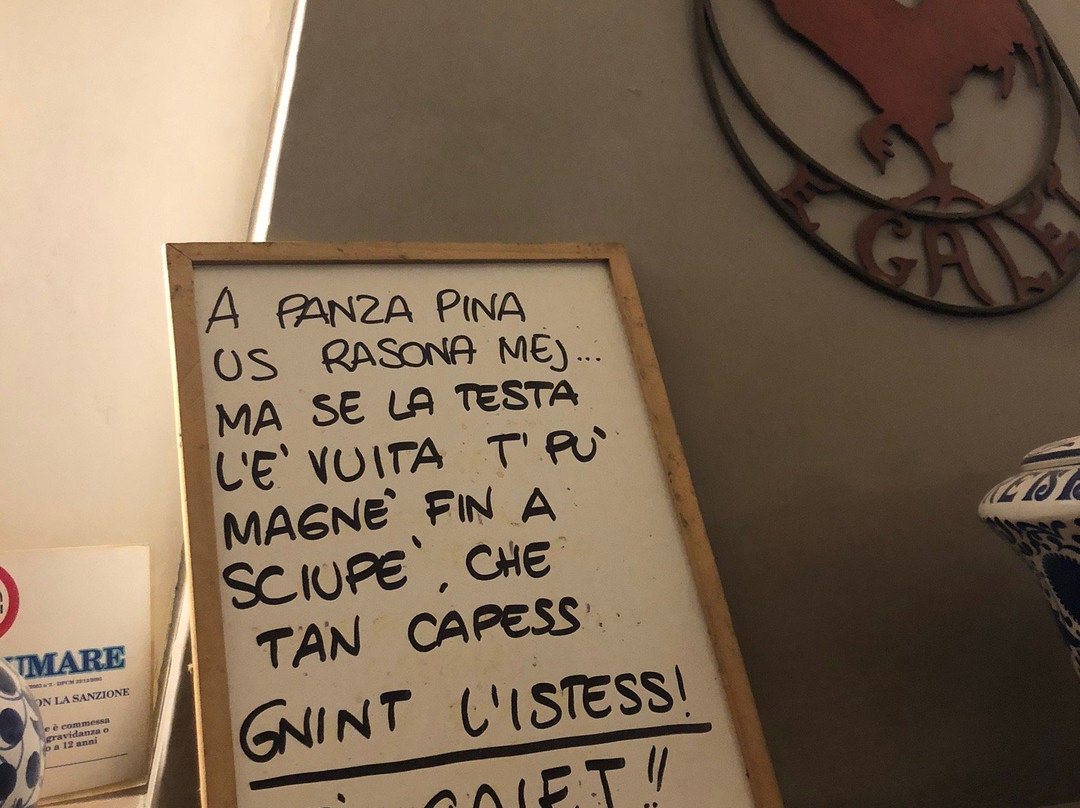 A PANZA PINA
US RASONA MEJ...
MA SE LA TESTA
L'E' VUITA T' PÙ
MAGNE' FIN A
SCIUPE', CHE
TAN CAPESS
GNINT L'ISTESS!
GALET!!
E GALET
UMARE
ON LA SANZIONE
e è commessa
gravidanza o
o a 12 anni